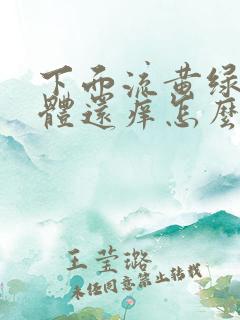 下面流黄绿
體還痒怎麽
王莹璐
未经同意禁止转载